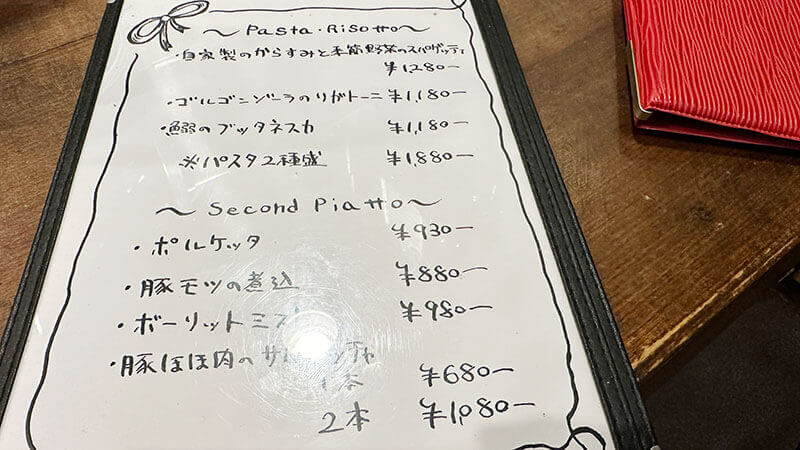 ～ Pasta・Risotto ～
・自家製のからすみと季節野菜のスパゲッティ
¥1,280－
・ゴルゴンゾーラのリガトーニ ¥1,180－
・鰯のプッタネスカ ¥1,180－
※パスタ2種盛 ¥1,880－
～ Second Piatto ～
・ポルケッタ ¥930－
・豚モツの煮込 ¥880－
・ボーリットミスト ¥980－
・豚ほほ肉の
¥680－
2本 ¥1,080－